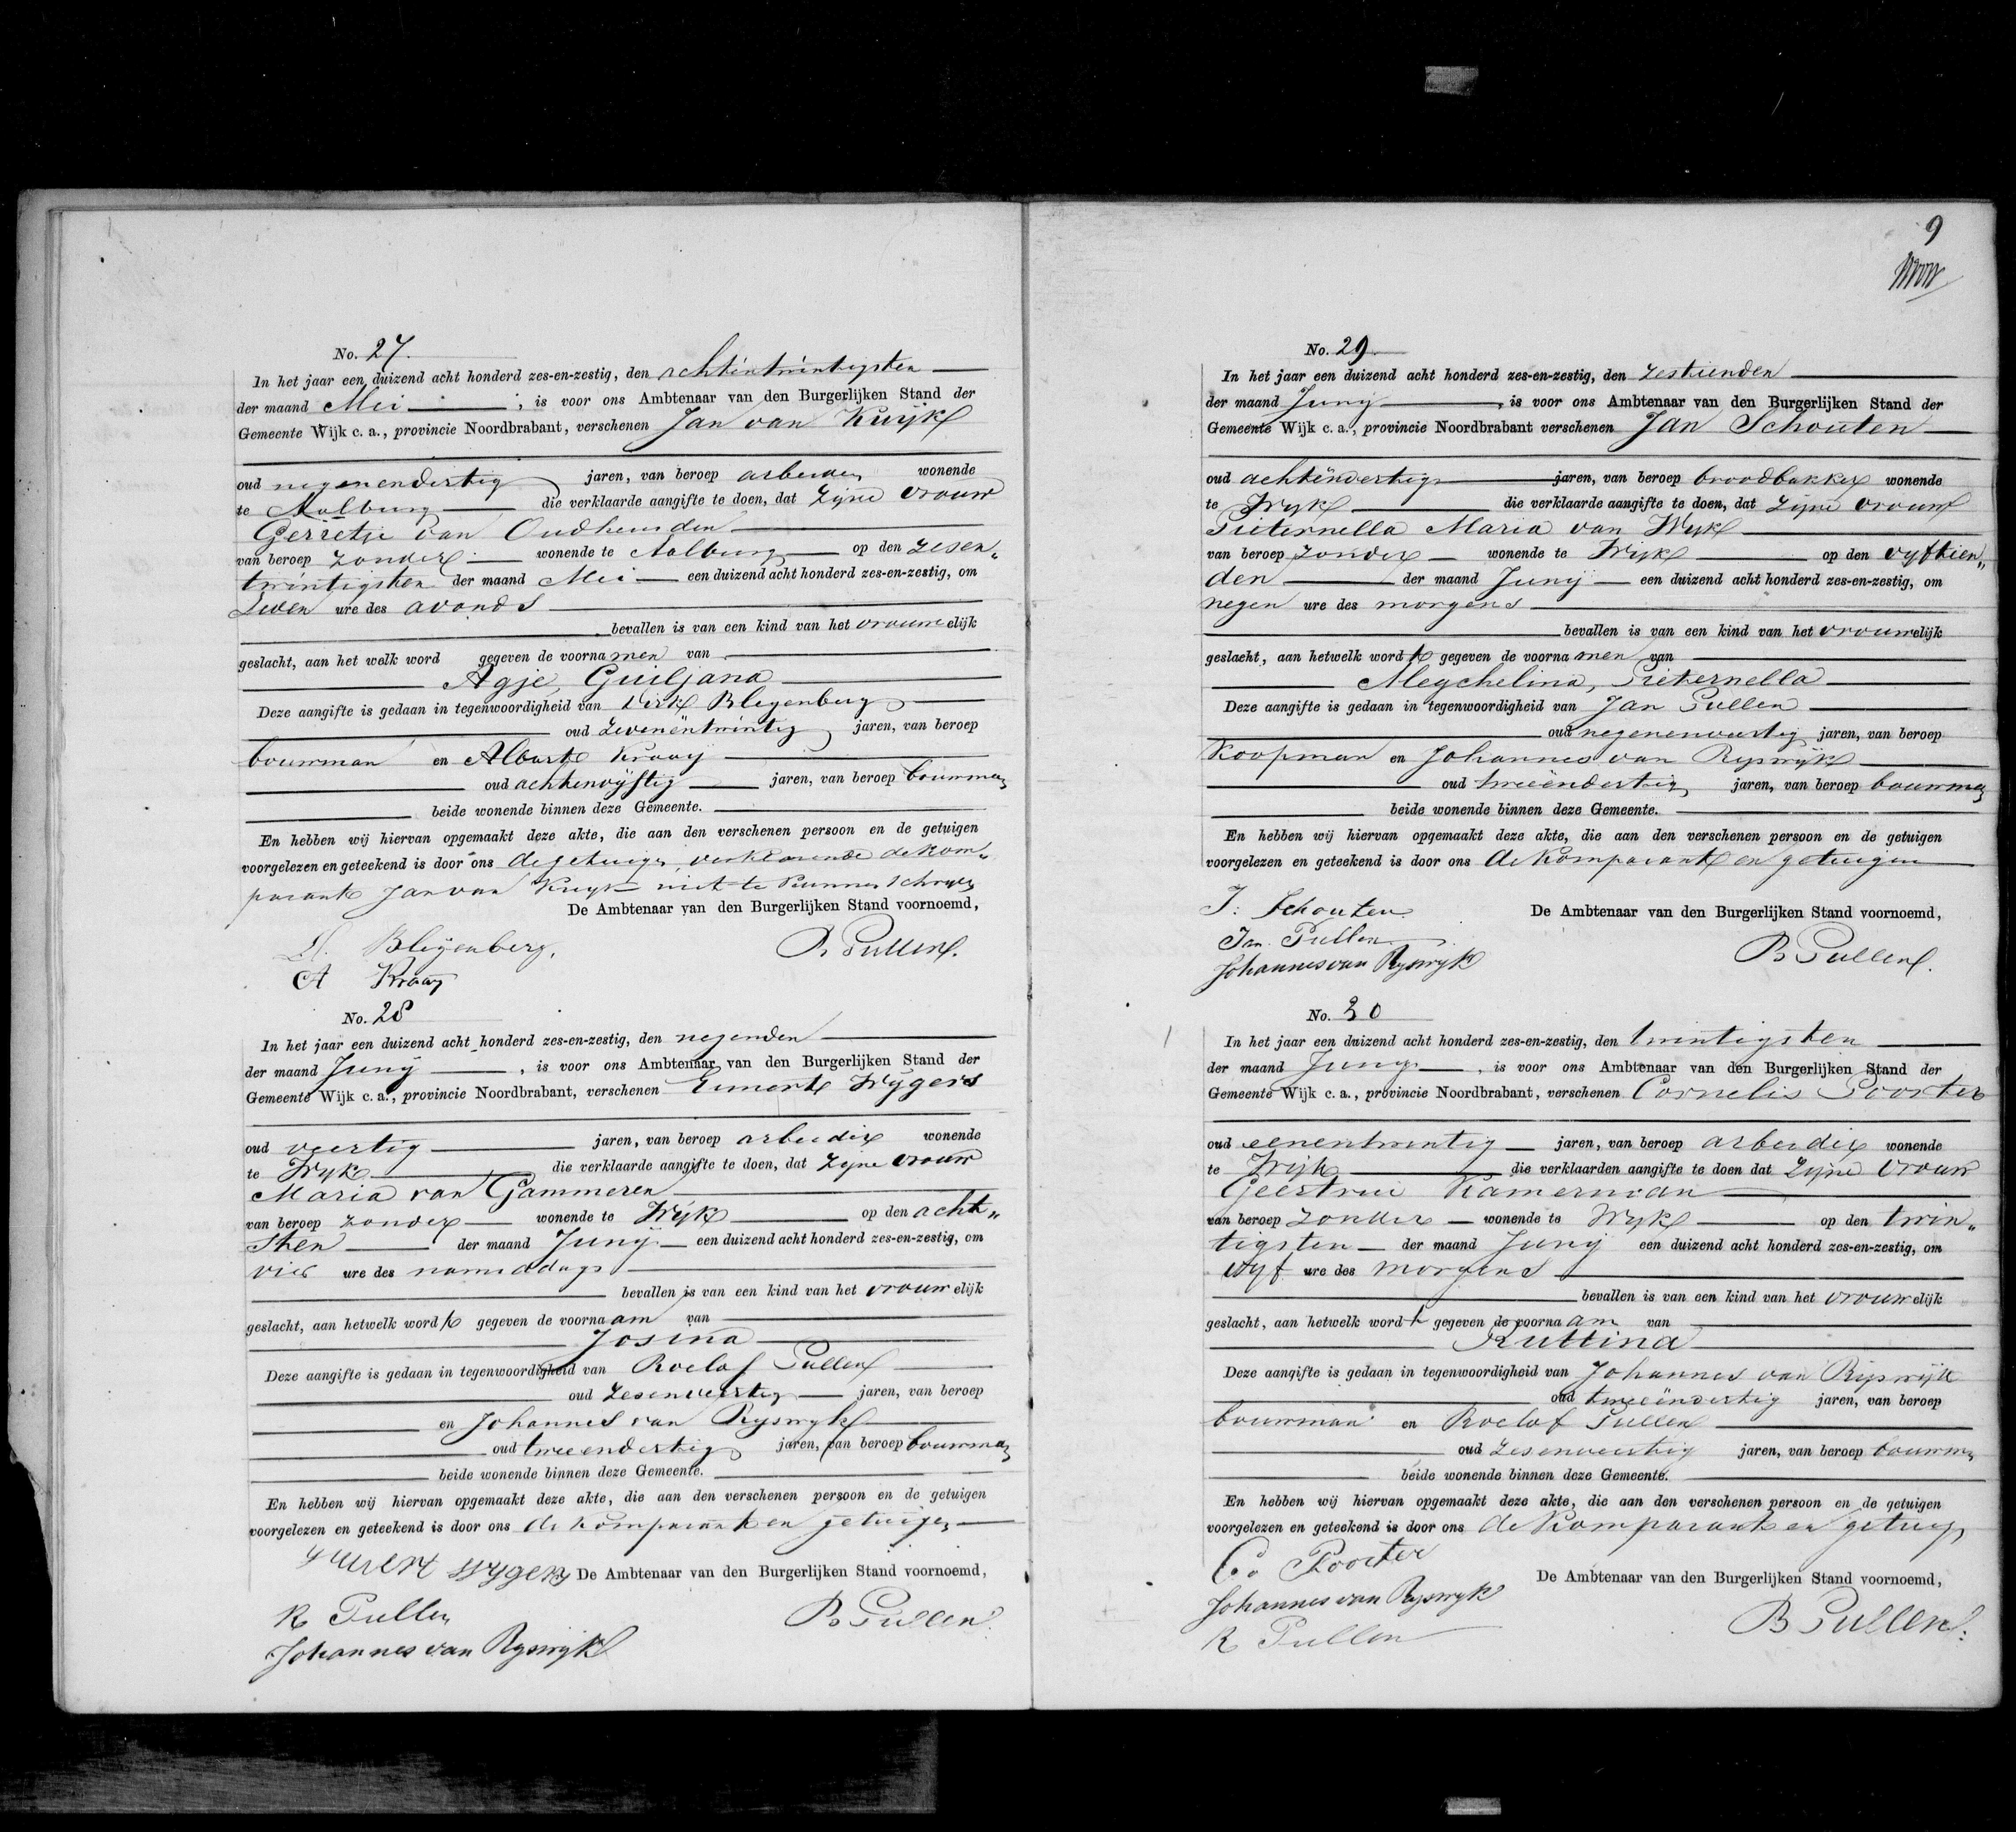 No. 27.
In het jaar een duizend acht honderd zes-en-zestig, den achtentwintigsten
der maand Mei, is voor ons Ambtenaar van den Burgerlijken Stand der
Gemeente Wijk c. a., provincie Noordbrabant, verschenen Jan van Kuijk
oud negenendertig jaren, van beroep arbeider wonende
te Aalburg die verklaarde aangifte te doen, dat zijne vrouw
Gerretje van Oudheusden
van beroep zonder wonende te Aalburg op den zesen„
twintigsten der maand Mei een duizend acht honderd zes-en-zestig, om
zeven ure des avonds
bevallen is van een kind van het vrouwelijk
geslacht, aan het welk word gegeven de voornamen van
Agje Guiljana
Deze aangifte is gedaan in tegenwoordigheid van Dirk Blijenberg
oud zevenëntwintig jaren, van beroep
bouwman en Albert Kraaij
oud achtenvijftig jaren, van beroep bouwman
beide wonende binnen deze Gemeente.
En hebben wij hiervan opgemaakt deze akte, die aan den verschenen persoon en de getuigen
voorgelezen en geteekend is door ons de getuigen verklarende de kom„
parant Jan van Kuijk niet te kunnen schrijven
De Ambtenaar van den Burgerlijken Stand voornoemd,
D. Blijenberg.
B Pullen.
A Kraaij
No. 28
In het jaar een duizend acht honderd zes-en-zestig, den negenden
der maand Junij, is voor ons Ambtenaar van den Burgerlijken Stand der
Gemeente Wijk c. a., provincie Noordbrabant, verschenen Eimert Wijgers
oud veertig jaren, van beroep arbeider wonende
te Wijk die verklaarde aangifte te doen, dat zijne vrouw
Maria van Gammeren
van beroep zonder wonende te Wijk op den acht„
sten der maand Junij een duizend acht honderd zes-en-zestig, om
vier ure des namiddags
bevallen is van een kind van het vrouwelijk
geslacht, aan hetwelk wordt gegeven de voornaam van
Josina
Deze aangifte is gedaan in tegenwoordigheid van Roelof Pullen
oud zesenveertig jaren, van beroep
en Johannes van Rijswijk
oud tweeendertig jaren, van beroep bouwman
beide wonende binnen deze Gemeente.
En hebben wij hiervan opgemaakt deze akte, die aan den verschenen persoon en de getuigen
voorgelezen en geteekend is door ons de komparant en getuigen
wygers De Ambtenaar van den Burgerlijken Stand voornoemd,
R Pullen
B Pullen.
Johannes van Ryswyk
9
No. 29.
In het jaar een duizend acht honderd zes-en-zestig, den zestienden
der maand Junij, is voor ons Ambtenaar van den Burgerlijken Stand der
Gemeente Wijk c. a., provincie Noordbrabant verschenen Jan Schouten
oud achtëndertig jaren, van beroep broodbakker wonende
te Wijk die verklaarde aangifte te doen, dat zijne vrouw
Pieternella Maria van Wijk
van beroep zonder wonende te Wijk op den vyftien„
den der maand Junij een duizend acht honderd zes-en-zestig, om
negen ure des morgens
bevallen is van een kind van het vrouwelijk
geslacht, aan hetwelk wordt gegeven de voornamen van
Megchelina, Pieternella
Deze aangifte is gedaan in tegenwoordigheid van Jan Pullen
oud negenenveertig jaren, van beroep
koopman en Johannes van Rijswijk
oud tweeëndertig jaren, van beroep bouwman
beide wonende binnen deze Gemeente.
En hebben wij hiervan opgemaakt deze akte, die aan den verschenen persoon en de getuigen
voorgelezen en geteekend is door ons de komparant en getuigen
J: Schouten
De Ambtenaar van den Burgerlijken Stand voornoemd,
Jan Pullen
B Pullen.
Johannes van Ryswyk
No. 30
In het jaar een duizend acht honderd zes-en-zestig, den twintigsten
der maand Junij, is voor ons Ambtenaar van den Burgerlijken Stand der
Gemeente Wijk c. a., provincie Noordbrabant, verschenen Cornelis Poorter
oud eenentwintig jaren, van beroep arbeider wonende
te Wijk die verklaarden aangifte te doen dat zijne vrouw
Geertrui Kamerman
van beroep zonder wonende te Wyk op den twin„
tigsten der maand Junij een duizend acht honderd zes-en-zestig, om
vyf ure des morgens
bevallen is van een kind van het vrouwelijk
geslacht, aan hetwelk wordt gegeven de voornaam van
Ruttina
Deze aangifte is gedaan in tegenwoordigheid van Johannes van Rijswijk
oud tweeëndertig jaren, van beroep
bouwman en Roelof Pullen
oud zesenveertig jaren, van beroep bouwman
beide wonende binnen deze Gemeente.
En hebben wij hiervan opgemaakt deze akte, die aan den verschenen persoon en de getuigen
voorgelezen en geteekend is door ons de komparant en getuigen
C. Poorter
De Ambtenaar van den Burgerlijken Stand voornoemd,
Johannes van Ryswyk
B Pullen.
R Pullen